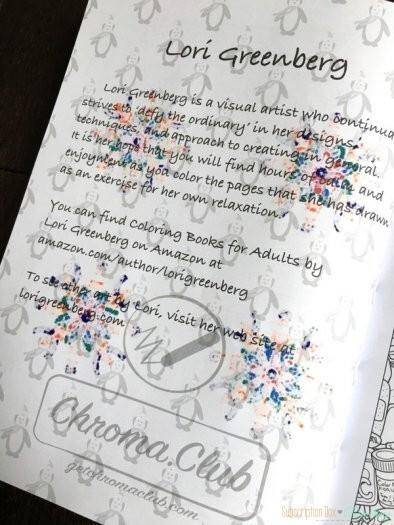 Lori Greenberg
Lori Greenberg is a visual artist who continua
strives to 'defy the ordinary' in her designs,
techniques, and approach to creating in general.
It is her hope that you will find hours of calm and
enjoyment as you color the pages that she has drawn
as an exercise for her own relaxation.
You can find Coloring Books for Adults by
Lori Greenberg on Amazon at
amazon.com/author/lorigreenberg
To see other art by Lori, visit her web site at
lorigreenberg.com
Chroma.Club
getchromaclub.com
Subscription Box